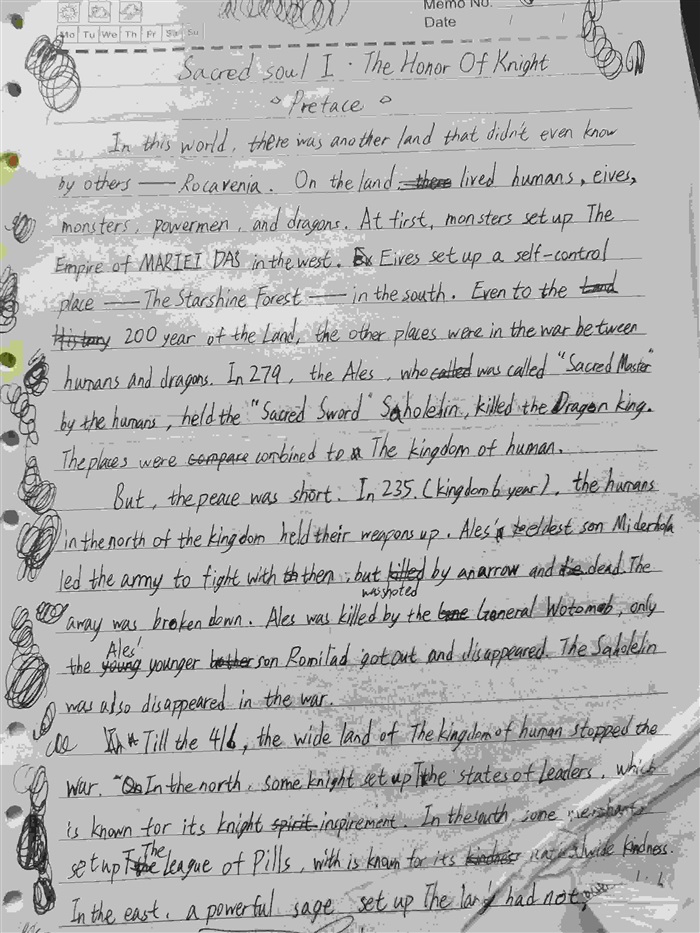 Memo No.
Mo Tu We Th Fr Sa Su
Date / /
Sacred soul I · The Honor Of Knight
◇ Preface ◇
In this world, there was another land that didn't even know
by others — Rocavenia. On the land there lived humans, eives,
monsters, powermen, and dragons. At first, monsters set up The
Empire of MARIEI DAS in the west. Ex Eives set up a self-control
place — The Starshine Forest — in the south. Even to the land
History 200 year of the Land, the other places were in the war between
humans and dragons. In 279, the Ales, who called was called "Sacred Master"
by the humans, held the "Sacred Sword" Saholelin, killed the Dragon king.
The places were compare combined to The kingdom of human.
But, the peace was short. In 235. (kingdom 6 year), the humans
in the north of the kingdom held their weapons up. Ales' eldest son Miderhola
led the army to fight with then, but killed by an arrow and dead The
was shoted
away was broken down. Ales was killed by the General Wotomob, only
Ales'
the young younger son Romilad got out and disappeared. The Saholelin
was also disappeared in the war.
Till the 416, the wide land of The kingdom of human stopped the
war. In the north, some knight set up The states of Leaders, which
is known for its knight spirit inspirement. In the south, some merchants
The
set up league of Pills, with is known for its kindness.
In the east, a powerful sage set up The land had not,